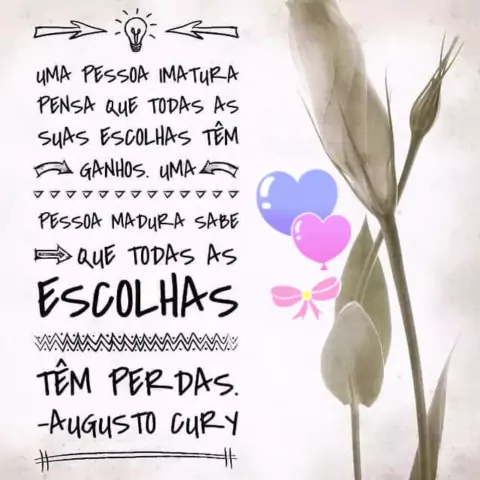 UMA PESSOA IMATURA
PENSA QUE TODAS AS
SUAS ESCOLHAS TÊM
GANHOS. UMA
PESSOA MADURA SABE
QUE TODAS AS
ESCOLHAS
TÊM PERDAS.
-AUGUSTO CURY